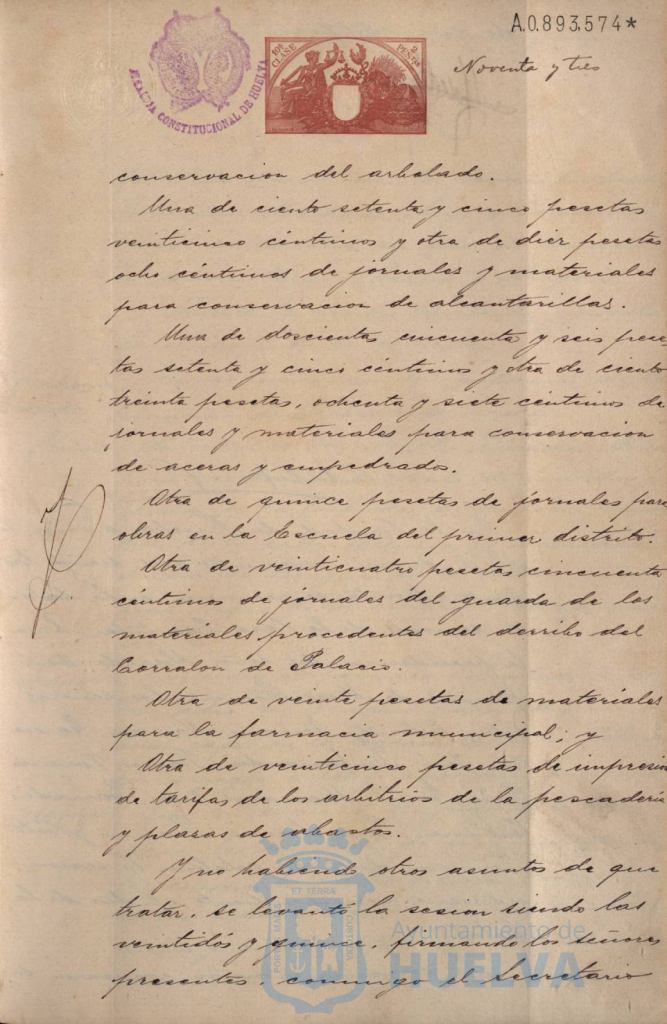 A.0.893.574*
10ª CLASE
2 PESETAS
ALCALDIA CONSTITUCIONAL DE HUELVA
Noventa y tres
conservacion del arbolado.
Una de ciento setenta y cinco pesetas
veinticinco céntimos y otra de diez pesetas
ocho céntimos de jornales y materiales
para conservacion de alcantarillas.
Una de doscientas cincuenta y seis pese-
tas setenta y cinco céntimos y otra de ciento
treinta pesetas, ochenta y siete céntimos de
jornales y materiales para conservacion
de aceras y empedrados.
Otra de quince pesetas de jornales para
obras en la Escuela del primer distrito.
Otra de veinticuatro pesetas cincuenta
céntimos de jornales del guarda de los
materiales procedentes del derribo del
Corralon de Palacio.
Otra de veinte pesetas de materiales
para la farmacia municipal; y
Otra de veinticinco pesetas de impresion
de tarifas de los arbitrios de la pescaderia
y plazas de abastos.
Y no habiendo otros asuntos de que
tratar, se levantó la sesion siendo las
veintidós y quince, firmando los señores
presentes, conmigo el Secretario
Ayuntamiento de
HUELVA